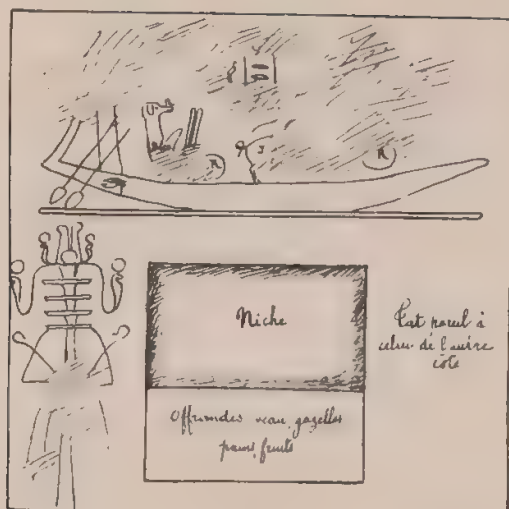 R
R
Niche
Est pareil à
celui de l'autre
côté
Offrandes veau, gazelles
pains, fruits